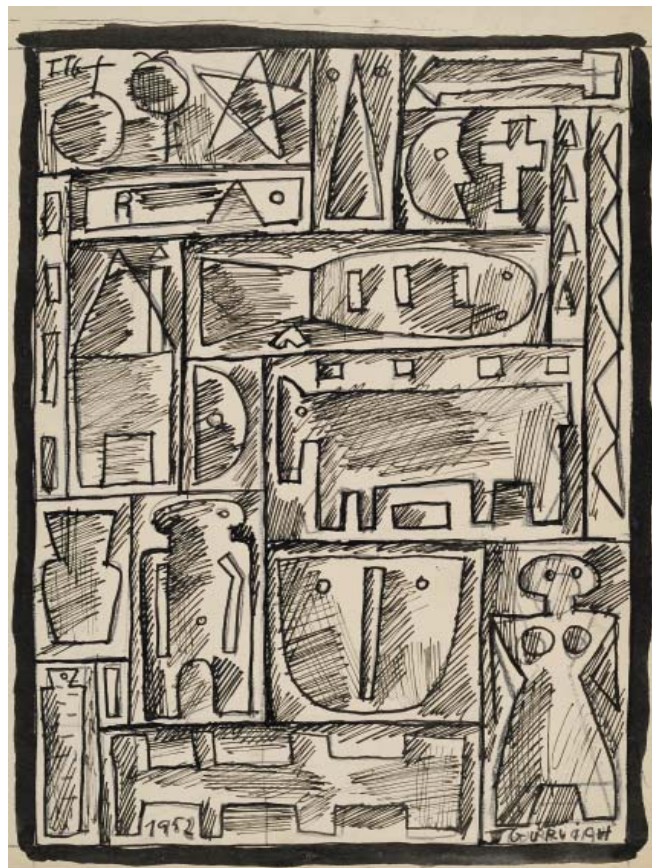 TTG
R
1952
GURVICH